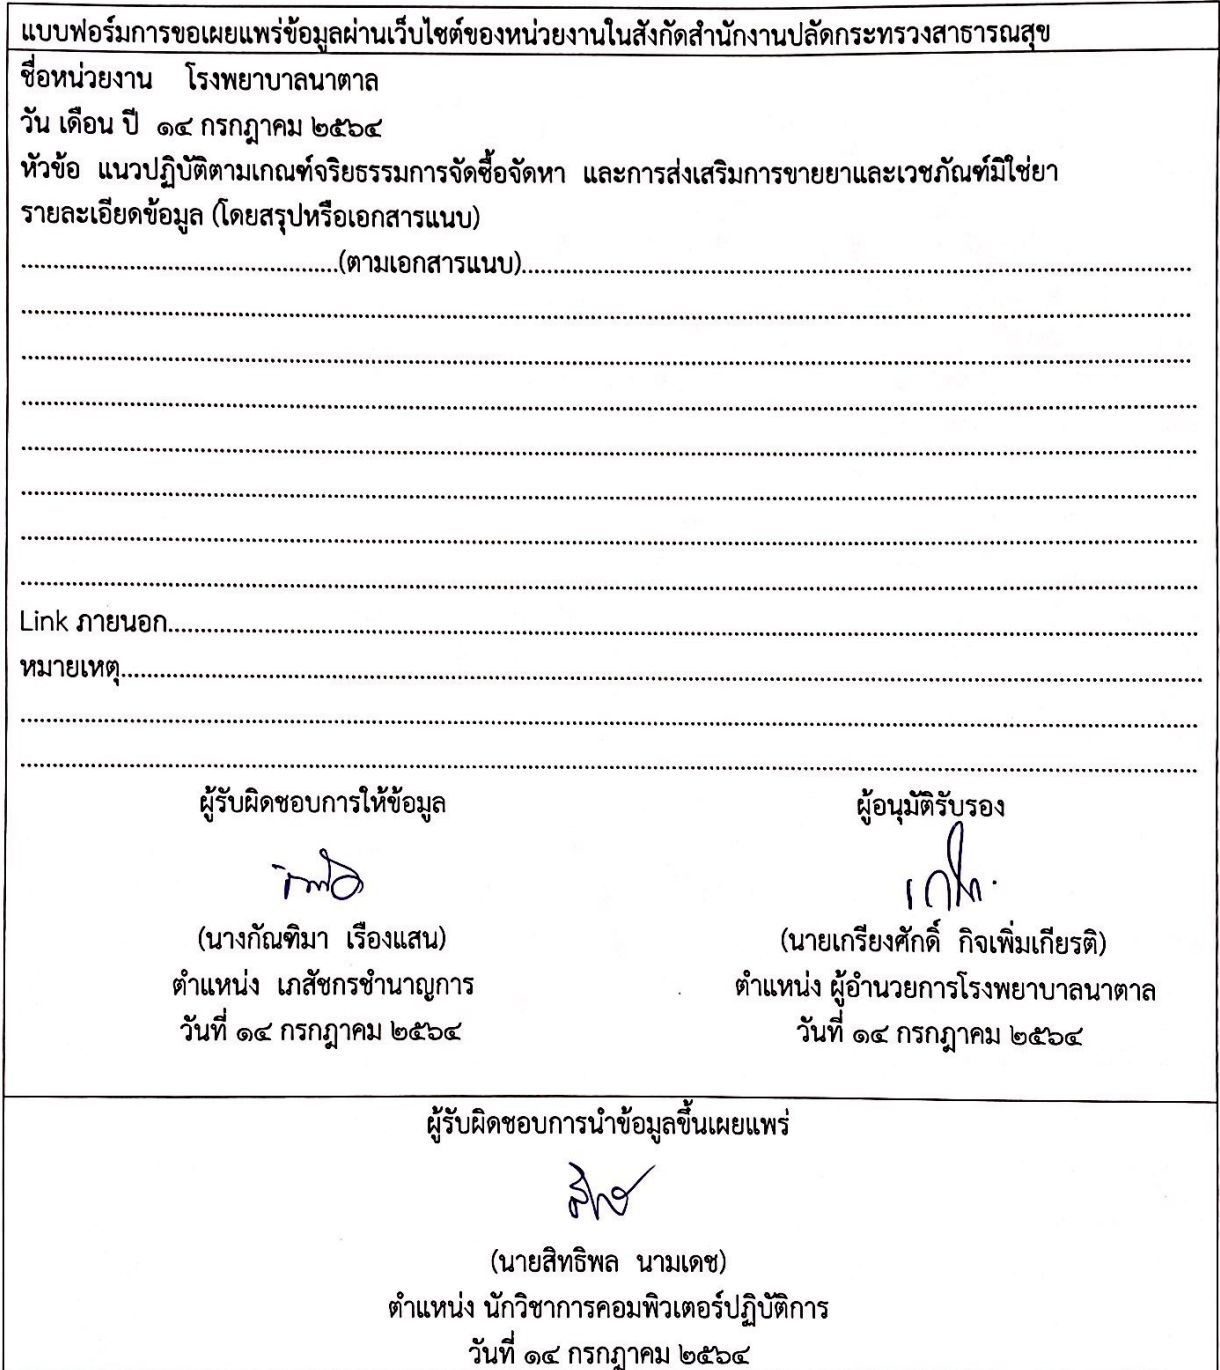 แบบฟอร์มการขอเผยแพร่ข้อมูลผ่านเว็บไซต์ของหน่วยงานในสังกัดสำนักงานปลัดกระทรวงสาธารณสุข
ชื่อหน่วยงาน โรงพยาบาลนาตาล
วัน เดือน ปี ๑๔ กรกฎาคม ๒๕๖๔
หัวข้อ แนวปฏิบัติตามเกณฑ์จริยธรรมการจัดซื้อจัดหา และการส่งเสริมการขายยาและเวชภัณฑ์มิใช่ยา
รายละเอียดข้อมูล (โดยสรุปหรือเอกสารแนบ)
(ตามเอกสารแนบ)
Link ภายนอก
หมายเหตุ
ผู้รับผิดชอบการให้ข้อมูล ผู้อนุมัติรับรอง
(นางกัณฑิมา เรืองแสน) (นายเกรียงศักดิ์ กิจเพิ่มเกียรติ)
ตำแหน่ง เภสัชกรชำนาญการ ตำแหน่ง ผู้อำนวยการโรงพยาบาลนาตาล
วันที่ ๑๔ กรกฎาคม ๒๕๖๔ วันที่ ๑๔ กรกฎาคม ๒๕๖๔
ผู้รับผิดชอบการนำข้อมูลขึ้นเผยแพร่
(นายสิทธิพล นามเดช)
ตำแหน่ง นักวิชาการคอมพิวเตอร์ปฏิบัติการ
วันที่ ๑๔ กรกฎาคม ๒๕๖๔